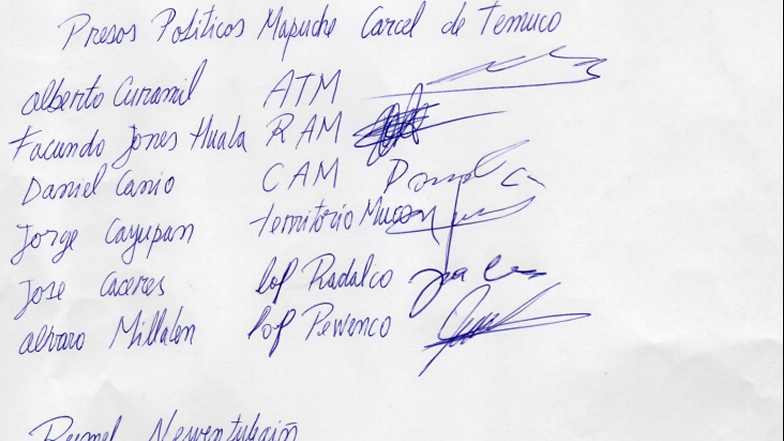 Presos Politicos Mapuche Carcel de Temuco
alberto Curamil ATM
Facundo Jones Huala RAM
Daniel Canio CAM
Jorge Cayupan territorio
Jose Caceres lof Radalco
alvaro Millalen lof Pewenco